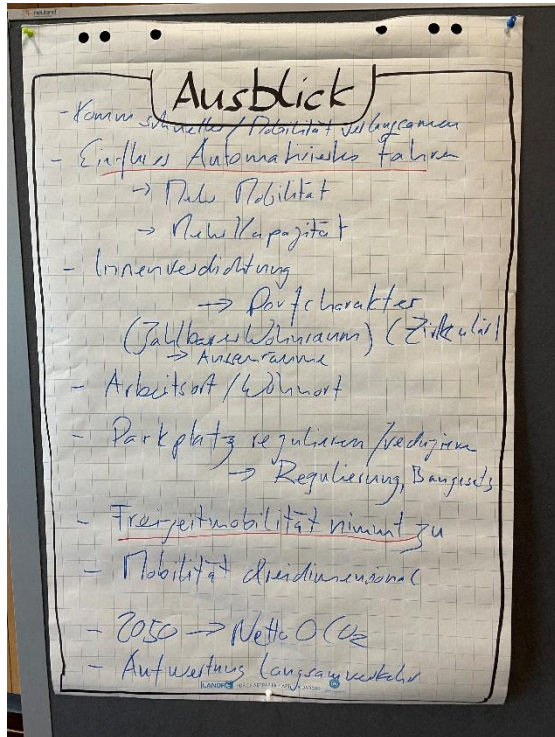 Ausblick
- Komm schneller / Mobilität verlangsamen
- Einfluss Automatisiertes Fahren
→ Mehr Mobilität
→ Mehr Kapazität
- Innenverdichtung
→ Dorfcharakter
(Zahlbarer Wohnraum) (Zirkulär)
→ Aussenräume
- Arbeitsort / Wohnort
- Parkplatz regulieren / reduzieren
→ Regulierung, Baugesetz
- Freizeitmobilität nimmt zu
- Mobilität dreidimensional
- 2050 → Netto 0 CO2
- Aufwertung Langsamverkehr
LANDRÉ